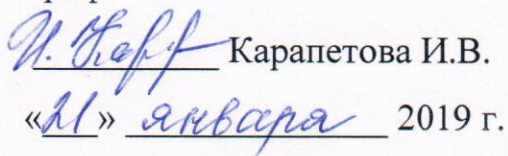 И. Кар Карапетова И.В.
«21» января 2019 г.